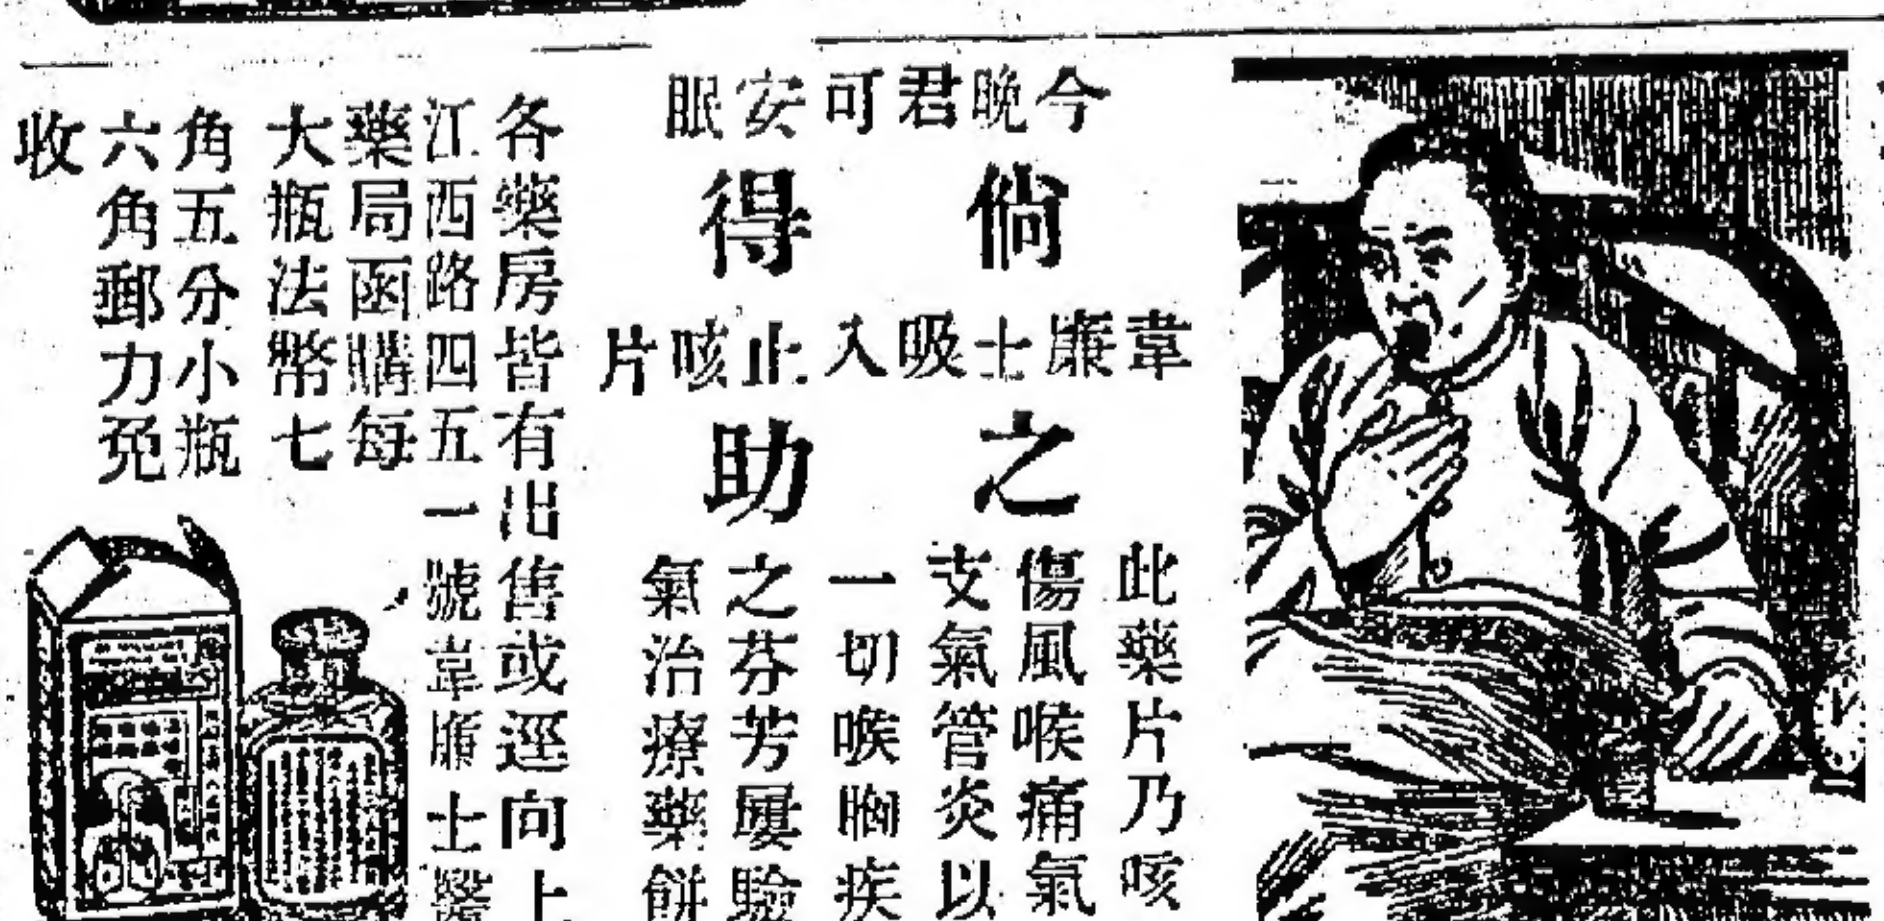 今晚君可安眠
倘得
韋廉士吸入止咳片
之助
此藥片乃咳
傷風喉痛氣
支氣管炎以
一切喉胸疾
之芬芳屢驗
氣治療藥餅
各藥房皆有出售或逕向上
江西路四五一號韋廉士醫
藥局函購每
大瓶法幣七
角五分小瓶
六角郵力免
收